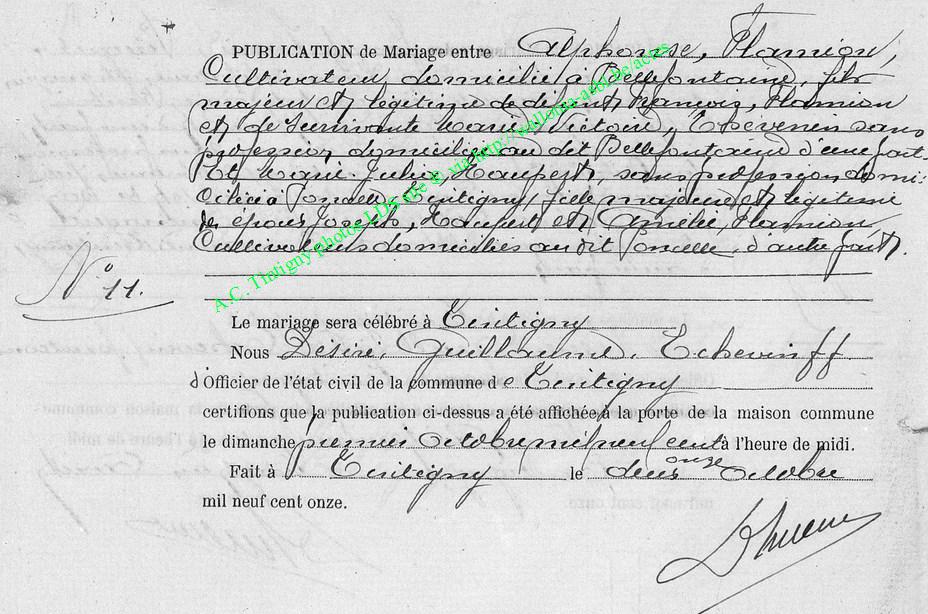 PUBLICATION de Mariage entre Alphonse, Flamion,
Cultivateur domicilié à Bellefontaine, fils
majeur et légitime de défunt François, Flamion
et de Survivante Marie-Victoire, Thévenin sans
profession domiciliée au dit Bellefontaine d'une part.
Et Marie-Julie, Maupert, sans profession domi-
ciliée à Poncelle, Tintigny fille majeure et légitime
des époux Joseph, Maupert et Amélie, Flamion,
Cultivateurs domiciliés au dit Poncelle, d'autre part.
N° 11.
Le mariage sera célébré à Tintigny
Nous Désiré, Guillaume, Echevin ff
d'Officier de l'état civil de la commune de Tintigny
certifions que la publication ci-dessus a été affichée à la porte de la maison commune
le dimanche premier octobre mil neuf cent à l'heure de midi.
onze
Fait à Tintigny le deux Octobre
mil neuf cent onze.
A.C. Tintigny photos LDS via http://wallonia-asbl.be/actes